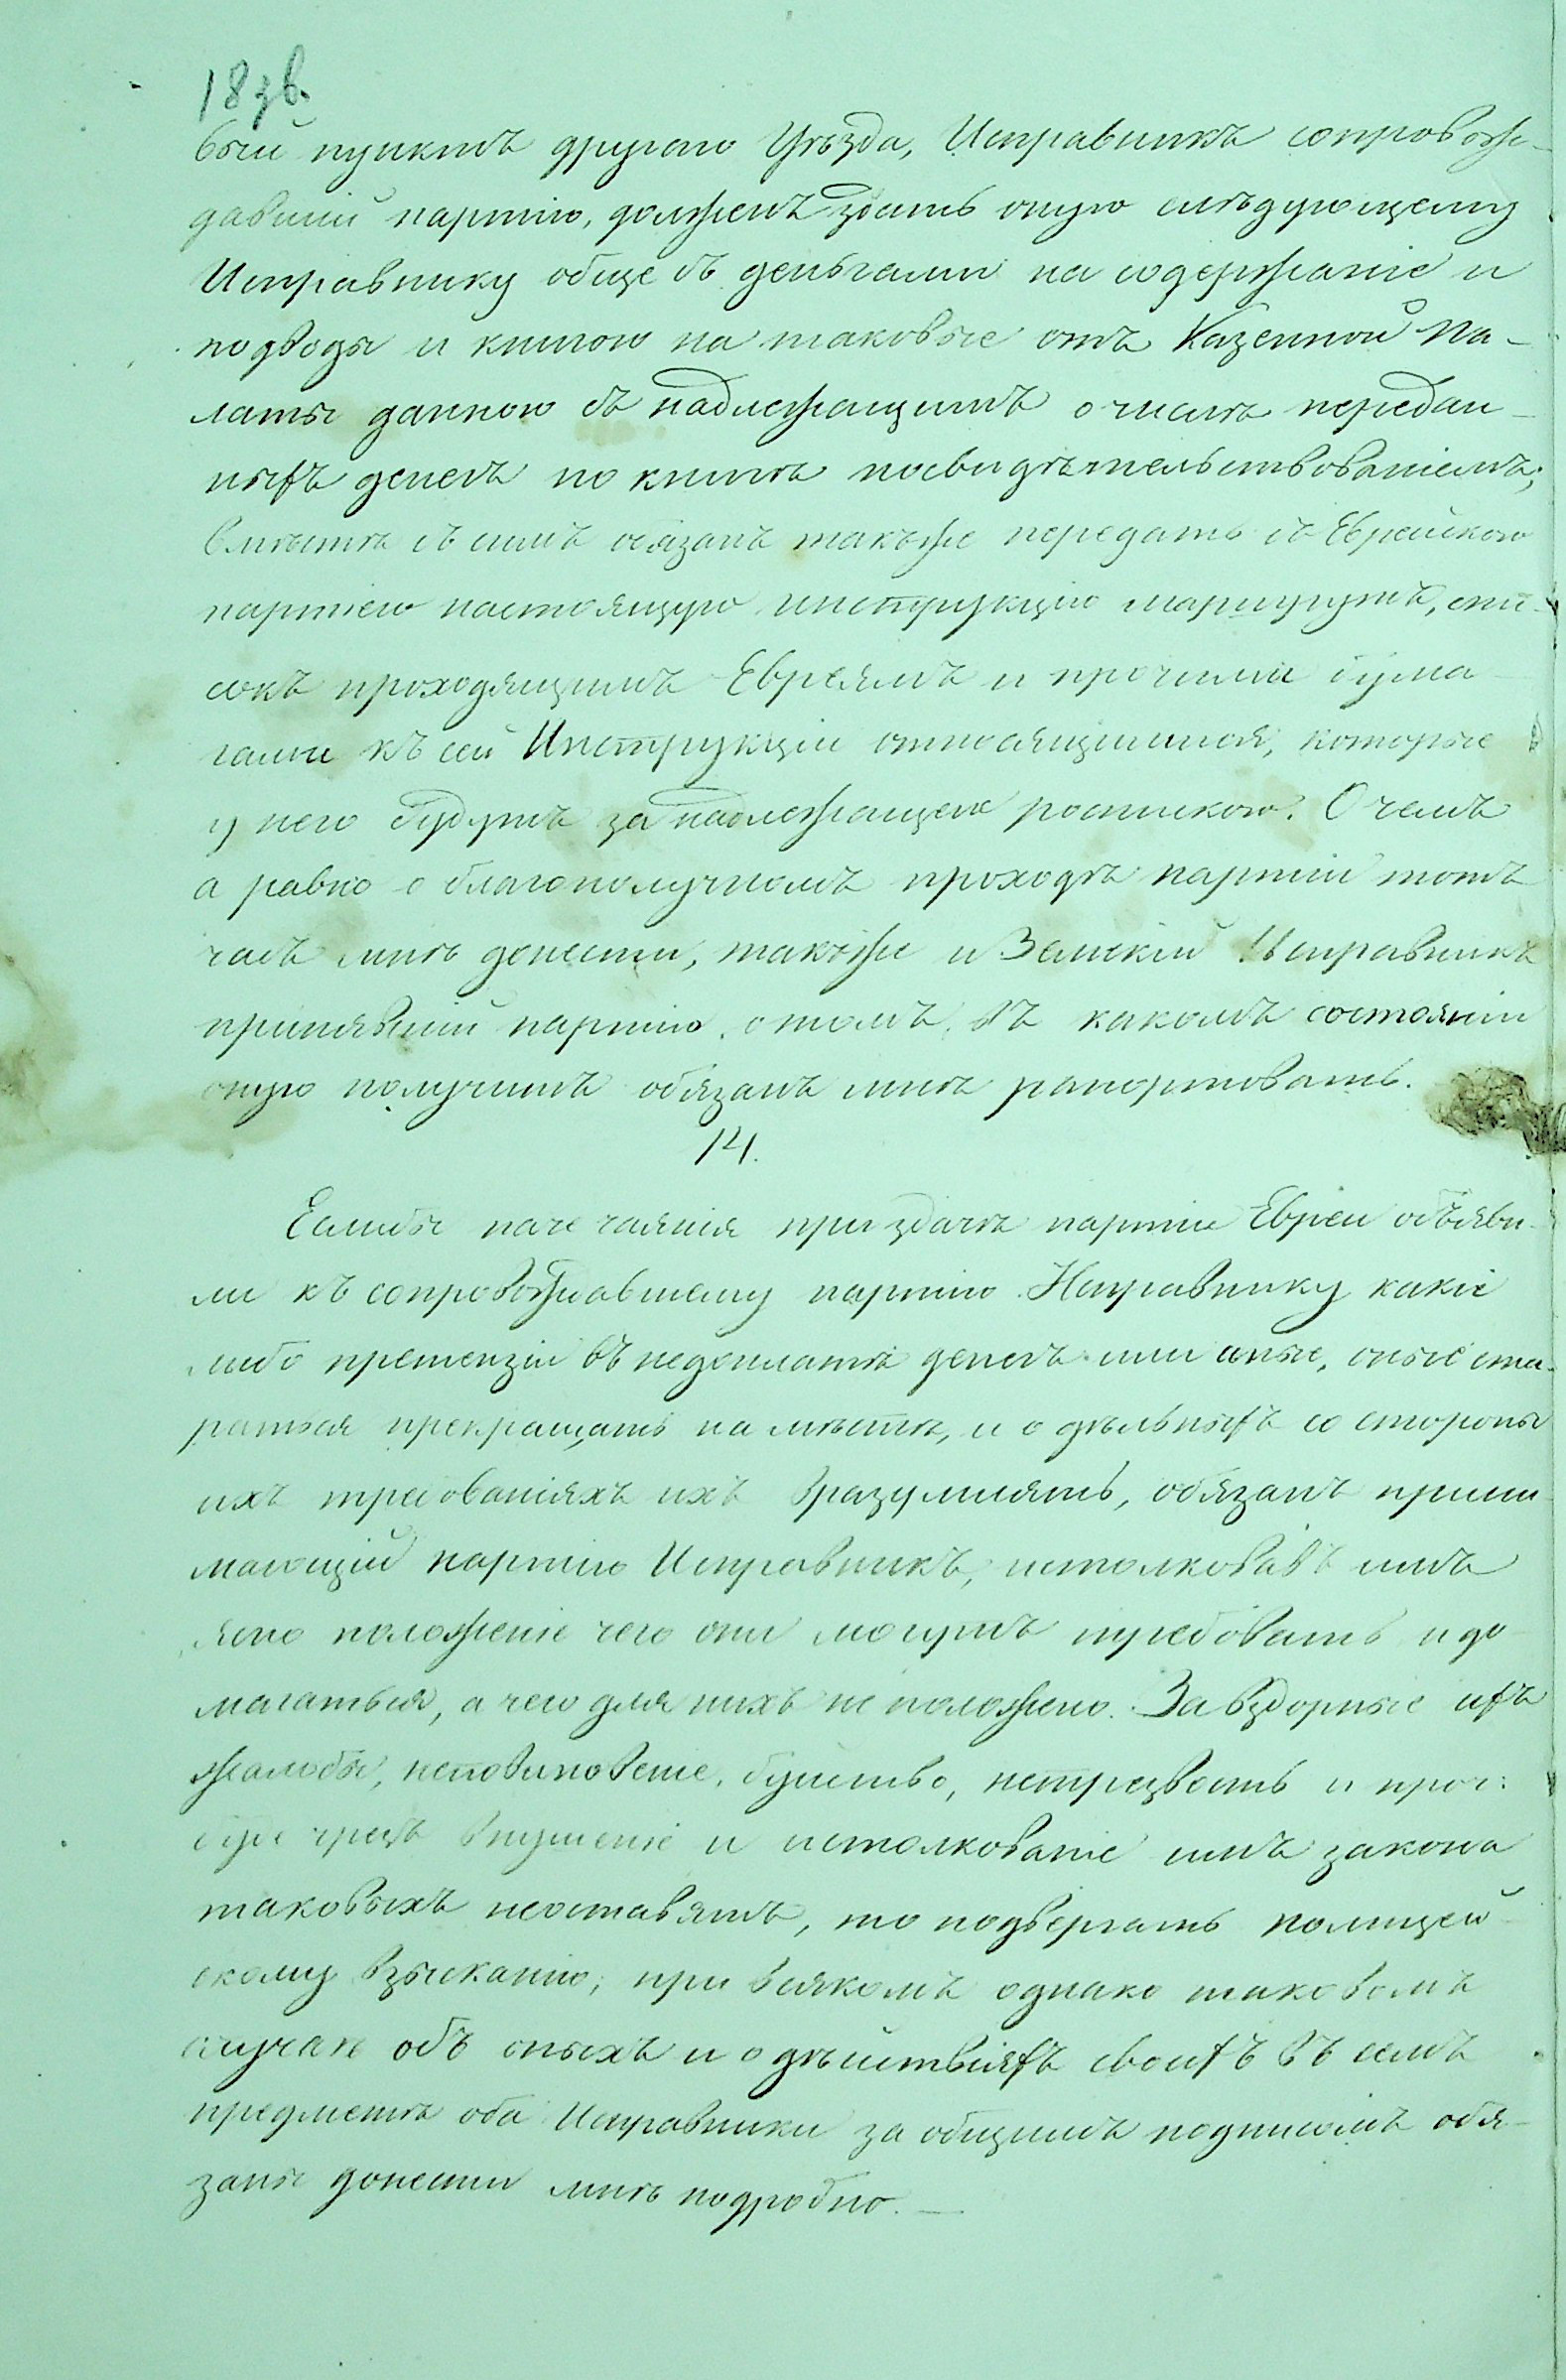 18зв.
вый пунктъ другого Уѣзда, Исправникъ сопровож-
давшій партію, долженъ здать оную слѣдующему
Исправнику обще съ деньгами на содержаніе и
подводы и книгою на таковые отъ Казенной Па-
латы данною съ надлежащимъ о числѣ передан-
ныхъ денегъ по книгѣ посвидѣтельствованіемъ;
вмѣстѣ съ симъ обязанъ такъже передать съ Еврейскою
партіею настоящую инструкцію маршрутъ, спи-
сокъ проходящимъ Евреямъ и прочими бума-
гами къ сей Инструкціи относящимися, которые
у него будутъ за надлежащею роспискою. О чемъ
а равно о благополучномъ проходѣ партіи тотъ
часъ мнѣ донести, такъже и Земскій Исправникъ
принявшій партію, о томъ, въ какомъ состояніи
оную получитъ обязанъ мнѣ рапортовать.
14.
Еслибы паче чаянія при здачѣ партіи Евреи объяви-
ли къ сопровождавшему партію Исправнику какіе
либо претензіи въ недоплатѣ денегъ или иные, оные ста-
раться прекращать на мѣстѣ, и о дѣльныхъ со стороны
ихъ требованіяхъ ихъ вразумлять, обязанъ прини-
мающій партію Исправникъ, истолковавъ имъ
ясно положеніе чего они могутъ требовать и до-
магаться, а чего для нихъ не положено. За вздорные ихъ
жалобы, неповиновеніе, буйство, нетрезвость и проч:
буде чрезъ внушеніе и истолкованіе имъ закона
таковыхъ неоставятъ, то подвергать полицей-
скому взысканію; при всякомъ однако таковомъ
случаѣ объ оныхъ и о дѣйствіяхъ своихъ въ семъ
предметѣ оба Исправники за общимъ подписомъ обя-
заны донести мнѣ подробно. —